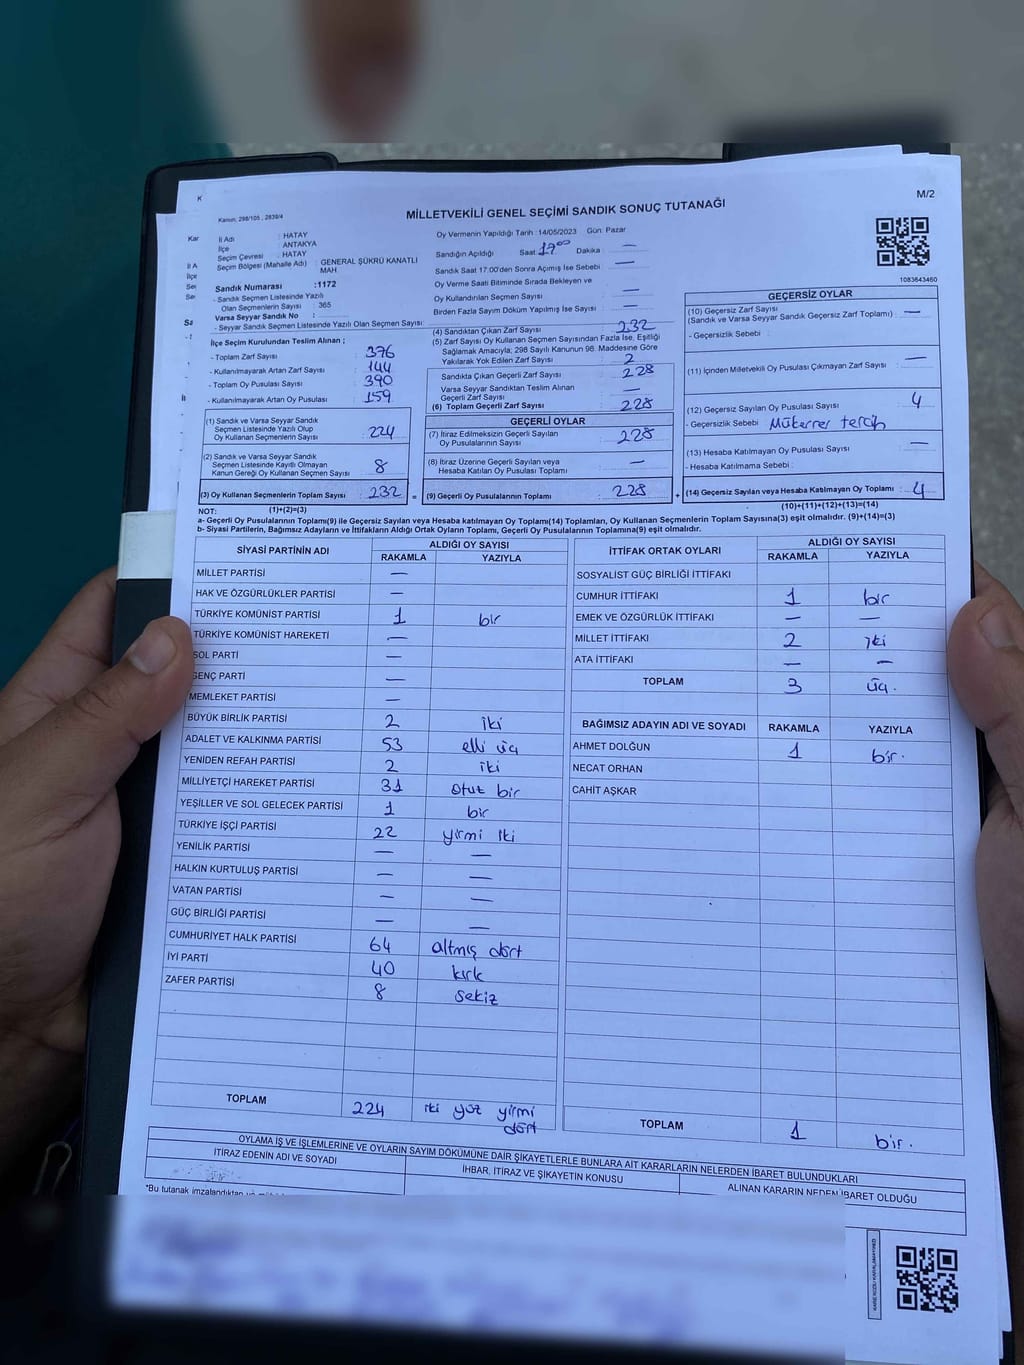 M/2
Kanun; 298/105 , 2839/4
MİLLETVEKİLİ GENEL SEÇİMİ SANDIK SONUÇ TUTANAĞI
İl Adı : HATAY
İlçe : ANTAKYA
Seçim Çevresi : HATAY
Seçim Bölgesi (Mahalle Adı) : GENERAL ŞÜKRÜ KANATLI MAH.
Sandık Numarası :1172
- Sandık Seçmen Listesinde Yazılı
Olan Seçmenlerin Sayısı : 365
Varsa Seyyar Sandık No :
- Seyyar Sandık Seçmen Listesinde Yazılı Olan Seçmen Sayısı:
Oy Vermenin Yapıldığı Tarih :14/05/2023 Gün: Pazar
Sandığın Açıldığı Saat: 17⁰⁰ Dakika : —
Sandık Saat 17:00'den Sonra Açılmış İse Sebebi : —
Oy Verme Saati Bitiminde Sırada Bekleyen ve
Oy Kullandırılan Seçmen Sayısı : —
Birden Fazla Sayım Döküm Yapılmış İse Sayısı : —
1083643460
İlçe Seçim Kurulundan Teslim Alınan ;
- Toplam Zarf Sayısı : 376
- Kullanılmayarak Artan Zarf Sayısı : 144
- Toplam Oy Pusulası Sayısı : 390
- Kullanılmayarak Artan Oy Pusulası : 159
(1) Sandık ve Varsa Seyyar Sandık
Seçmen Listesinde Yazılı Olup
Oy Kullanan Seçmenlerin Sayısı : 224
(2) Sandık ve Varsa Seyyar Sandık
Seçmen Listesinde Kayıtlı Olmayan
Kanun Gereği Oy Kullanan Seçmen Sayısı : 8
(3) Oy Kullanan Seçmenlerin Toplam Sayısı : 232
(1)+(2)=(3)
(4) Sandıktan Çıkan Zarf Sayısı : 232
(5) Zarf Sayısı Oy Kullanan Seçmen Sayısından Fazla İse, Eşitliği
Sağlamak Amacıyla; 298 Sayılı Kanunun 98. Maddesine Göre
Yakılarak Yok Edilen Zarf Sayısı : 2
Sandıkta Çıkan Geçerli Zarf Sayısı : 228
Varsa Seyyar Sandıktan Teslim Alınan
Geçerli Zarf Sayısı : —
(6) Toplam Geçerli Zarf Sayısı : 228
GEÇERLİ OYLAR
(7) İtiraz Edilmeksizin Geçerli Sayılan
Oy Pusulalarının Sayısı : 228
(8) İtiraz Üzerine Geçerli Sayılan veya
Hesaba Katılan Oy Pusulası Toplamı : —
= (9) Geçerli Oy Pusulalarının Toplamı : 228
GEÇERSİZ OYLAR
(10) Geçersiz Zarf Sayısı
(Sandık ve Varsa Seyyar Sandık Geçersiz Zarf Toplamı) : —
- Geçersizlik Sebebi :
(11) İçinden Milletvekili Oy Pusulası Çıkmayan Zarf Sayısı : —
(12) Geçersiz Sayılan Oy Pusulası Sayısı : 4
- Geçersizlik Sebebi : Mükerrer tercih
(13) Hesaba Katılmayan Oy Pusulası Sayısı : —
- Hesaba Katılmama Sebebi :
+ (14) Geçersiz Sayılan veya Hesaba Katılmayan Oy Toplamı : 4
(10)+(11)+(12)+(13)=(14)
NOT:
a- Geçerli Oy Pusulalarının Toplamı(9) ile Geçersiz Sayılan veya Hesaba katılmayan Oy Toplamı(14) Toplamları, Oy Kullanan Seçmenlerin Toplam Sayısına(3) eşit olmalıdır. (9)+(14)=(3)
b- Siyasi Partilerin, Bağımsız Adayların ve İttifakların Aldığı Ortak Oyların Toplamı, Geçerli Oy Pusulalarının Toplamına(9) eşit olmalıdır.
SİYASİ PARTİNİN ADI ALDIĞI OY SAYISI
RAKAMLA YAZIYLA
MİLLET PARTİSİ —
HAK VE ÖZGÜRLÜKLER PARTİSİ —
TÜRKİYE KOMÜNİST PARTİSİ 1 bir
TÜRKİYE KOMÜNİST HAREKETİ —
SOL PARTİ —
GENÇ PARTİ —
MEMLEKET PARTİSİ —
BÜYÜK BİRLİK PARTİSİ 2 iki
ADALET VE KALKINMA PARTİSİ 53 elli üç
YENİDEN REFAH PARTİSİ 2 iki
MİLLİYETÇİ HAREKET PARTİSİ 31 otuz bir
YEŞİLLER VE SOL GELECEK PARTİSİ 1 bir
TÜRKİYE İŞÇİ PARTİSİ 22 yirmi iki
YENİLİK PARTİSİ — —
HALKIN KURTULUŞ PARTİSİ — —
VATAN PARTİSİ — —
GÜÇ BİRLİĞİ PARTİSİ — —
CUMHURİYET HALK PARTİSİ 64 altmış dört
İYİ PARTİ 40 kırk
ZAFER PARTİSİ 8 sekiz
TOPLAM 224 iki yüz yirmi dört
İTTİFAK ORTAK OYLARI ALDIĞI OY SAYISI
RAKAMLA YAZIYLA
SOSYALİST GÜÇ BİRLİĞİ İTTİFAKI
CUMHUR İTTİFAKI 1 bir
EMEK VE ÖZGÜRLÜK İTTİFAKI — —
MİLLET İTTİFAKI 2 iki
ATA İTTİFAKI — —
TOPLAM 3 üç.
BAĞIMSIZ ADAYIN ADI VE SOYADI RAKAMLA YAZIYLA
AHMET DOLĞUN 1 bir.
NECAT ORHAN
CAHİT AŞKAR
TOPLAM 1 bir.
OYLAMA İŞ VE İŞLEMLERİNE VE OYLARIN SAYIM DÖKÜMÜNE DAİR ŞİKAYETLERLE BUNLARA AİT KARARLARIN NELERDEN İBARET BULUNDUKLARI
İTİRAZ EDENİN ADI VE SOYADI İHBAR, İTİRAZ VE ŞİKAYETİN KONUSU ALINAN KARARIN NEDEN İBARET OLDUĞU
*Bu tutanak imzalandıktan